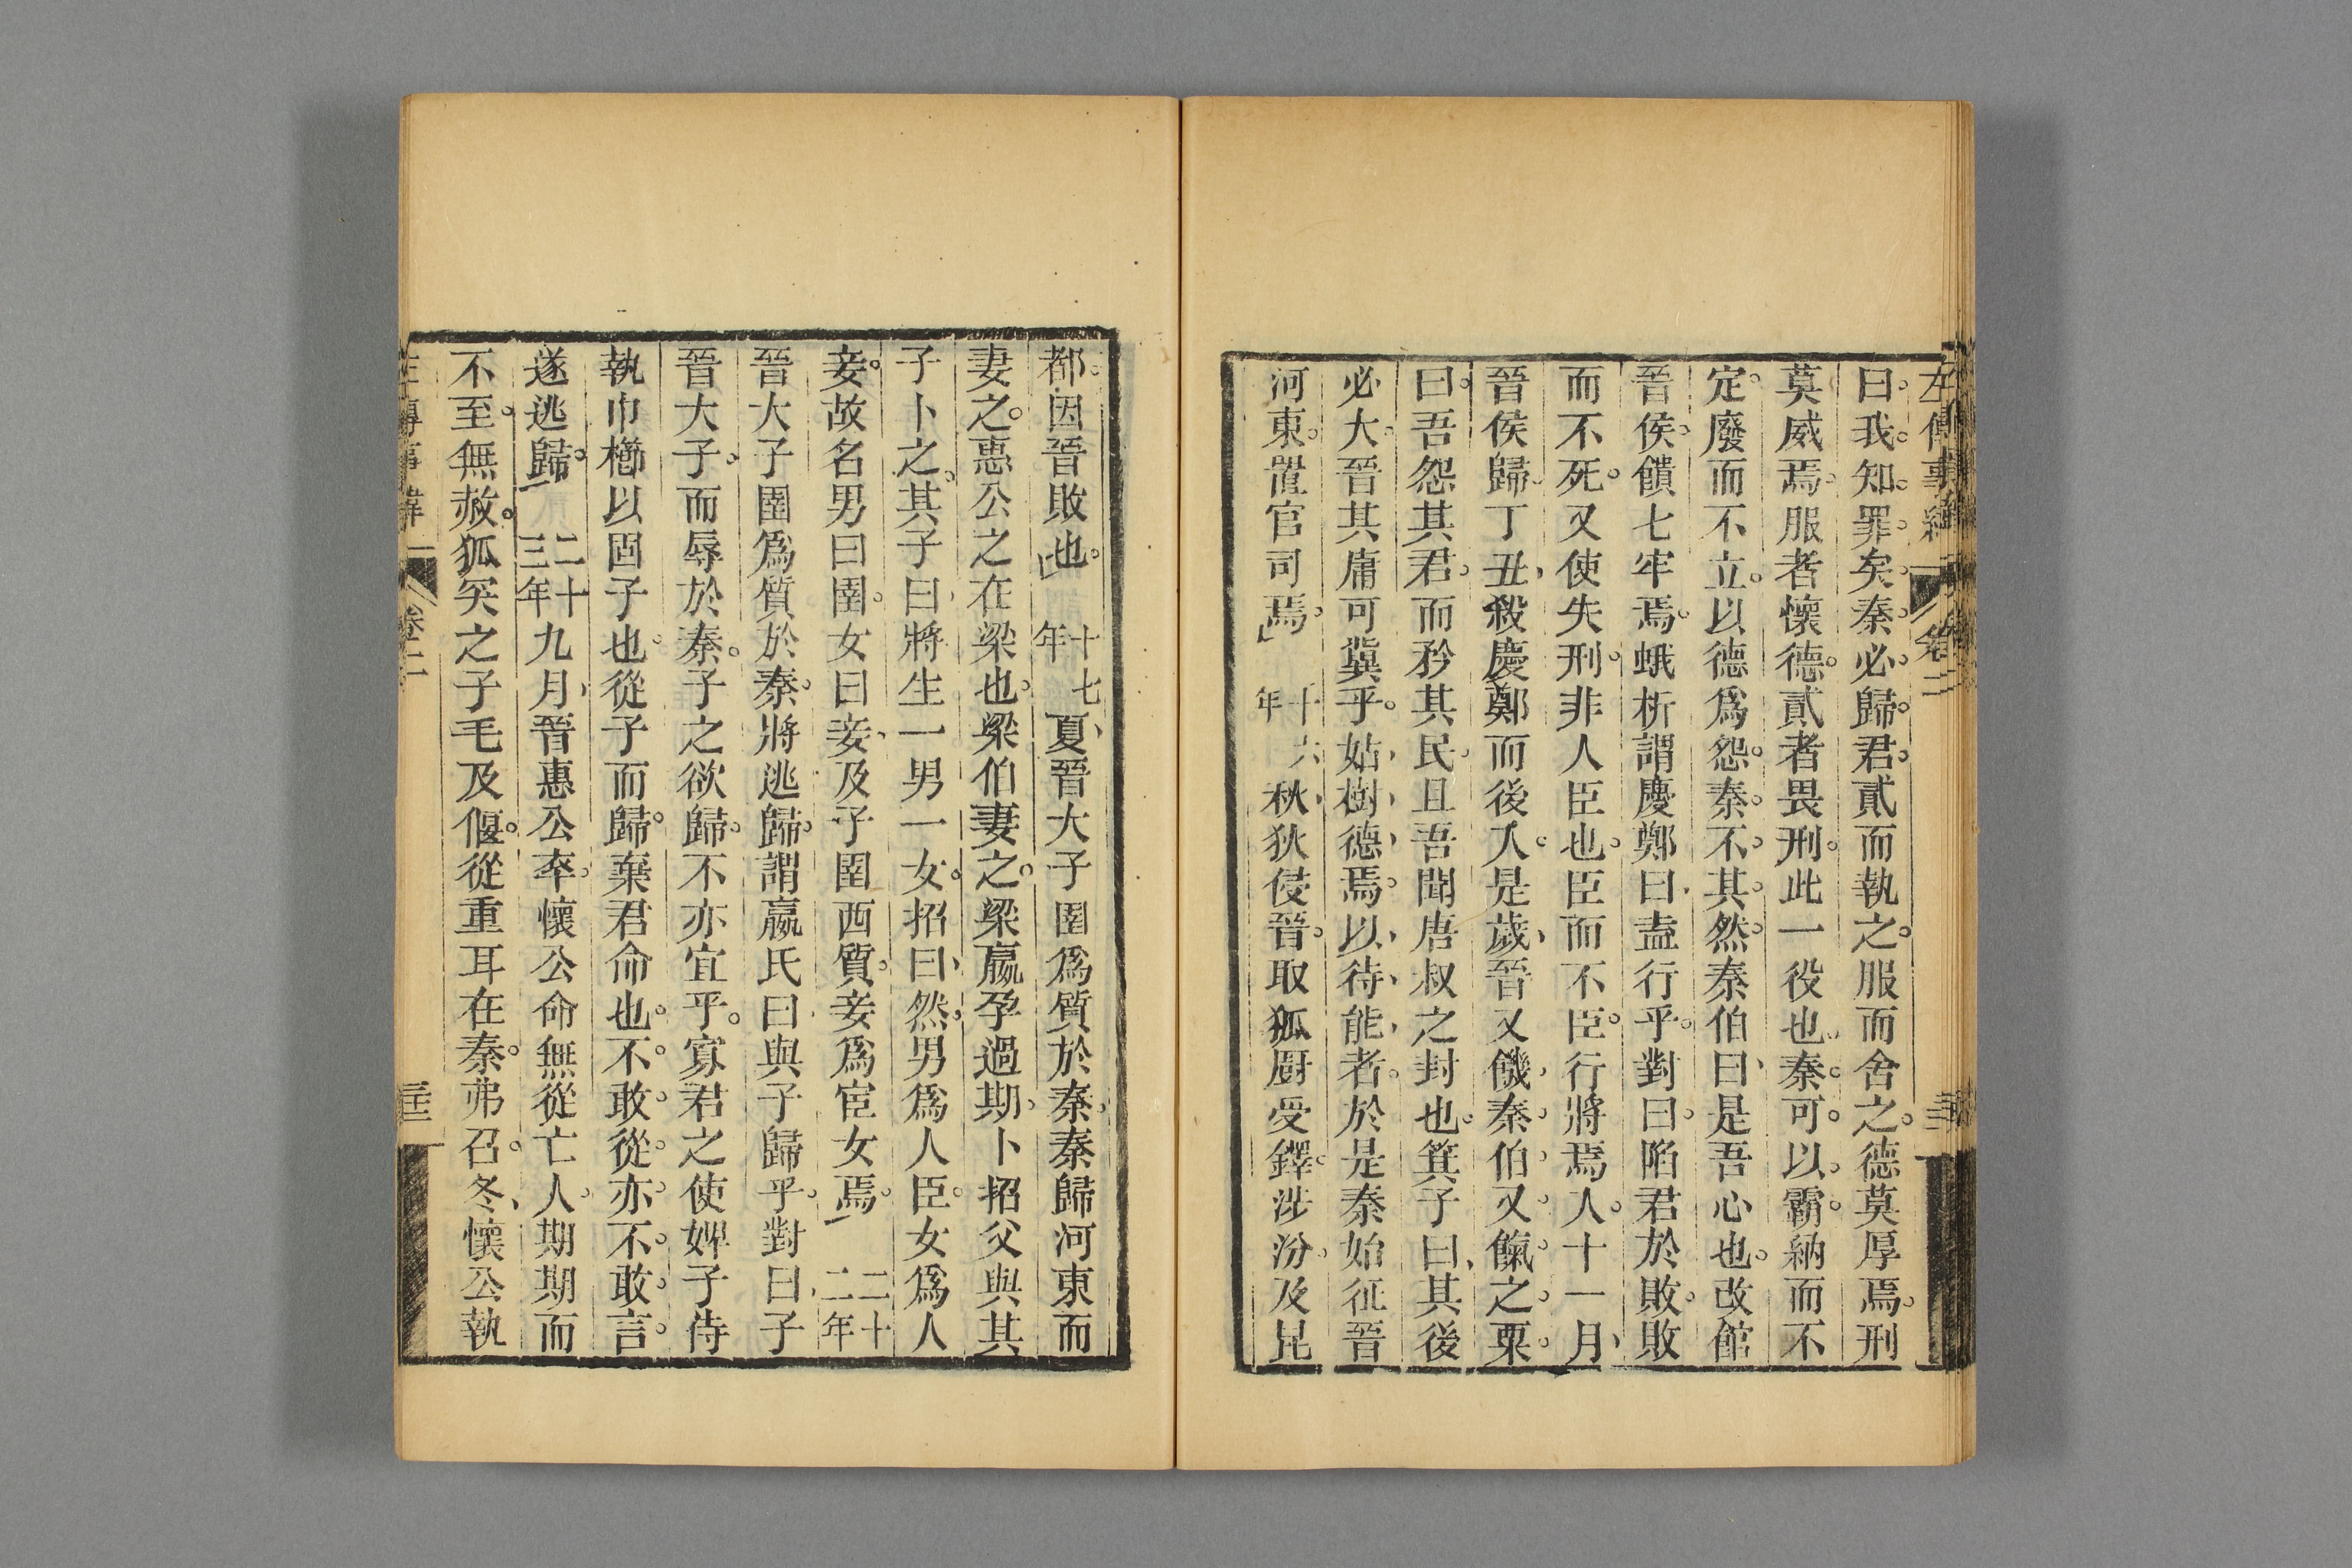 左傳事緯 卷二
曰我知罪矣秦必歸君貳而執之服而舍之德莫厚焉刑
莫威焉服者懷德貳者畏刑此一役也秦可以霸納而不
定廢而不立以德爲怨秦不其然秦伯曰是吾心也改館
晉侯饋七牢焉蛾析謂慶鄭曰盍行乎對曰陷君於敗敗
而不死又使失刑非人臣也臣而不臣行將焉入十一月
晉侯歸丁丑殺慶鄭而後入是歲晉又饑秦伯又餼之粟
曰吾怨其君而矜其民且吾聞唐叔之封也箕子曰其後
必大晉其庸可冀乎姑樹德焉以待能者於是秦始征晉
河東置官司焉 十六年 秋狄侵晉取狐厨受鐸涉汾及昆
都因晉敗也 十七年 夏晉大子圉爲質於秦秦歸河東而
妻之惠公之在梁也梁伯妻之梁嬴孕過期卜招父與其
子卜之其子曰將生一男一女招曰然男爲人臣女爲人
妾故名男曰圉女曰妾及子圉西質妾爲宦女焉 二十二年
晉大子圉爲質於秦將逃歸謂嬴氏曰與子歸乎對曰子
晉大子而辱於秦子之欲歸不亦宜乎寡君之使婢子侍
執巾櫛以固子也從子而歸棄君命也不敢從亦不敢言
遂逃歸 二十三年 九月晉惠公卒懷公命無從亡人期期而
不至無赦狐突之子毛及偃從重耳在秦弗召冬懷公執
左傳事緯 卷二